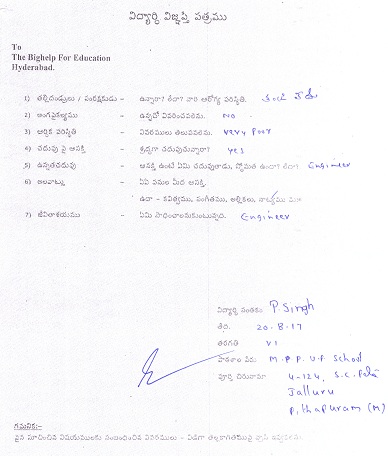 విద్యార్థి విజ్ఞప్తి పత్రము
To
The Bighelp For Education
Hyderabad.
1) తల్లిదండ్రులు / సంరక్షకుడు - ఉన్నారా? లేదా? వారి ఆరోగ్య పరిస్థితి. తండ్రి
2) అంగవైకల్యము - ఉన్నచో వివరించవలెను. NO
3) ఆర్థిక పరిస్థితి - వివరములు తెలుపవలెను. very Poor
4) చదువు పై ఆసక్తి - శ్రద్ధగా చదువుతున్నారా? yes
5) ఉన్నతచదువు - ఆసక్తి ఉంటే ఏమి చదువుతాడు, స్తోమత ఉందా? లేదా? Engineer
6) అలవాట్లు - ఏఏ పనుల మీద ఆసక్తి.
ఉదా - కవిత్వము, సంగీతము, అల్లికలు, నాట్యము
7) జీవితాశయము - ఏమి సాధించాలనుకుంటున్నది. Engineer
విద్యార్థి సంతకం P. Singh
తేది. 20-8-17
తరగతి VI
పాఠశాల పేరు M.P.P. U.P School
పూర్తి చిరునామా 4-124, S.C. Peta
Jalluru
Pithapuram (M)
గమనిక:-
పైన సూచించిన విషయములకు సంబంధించిన వివరములు - విడిగా తెల్లకాగితముపై